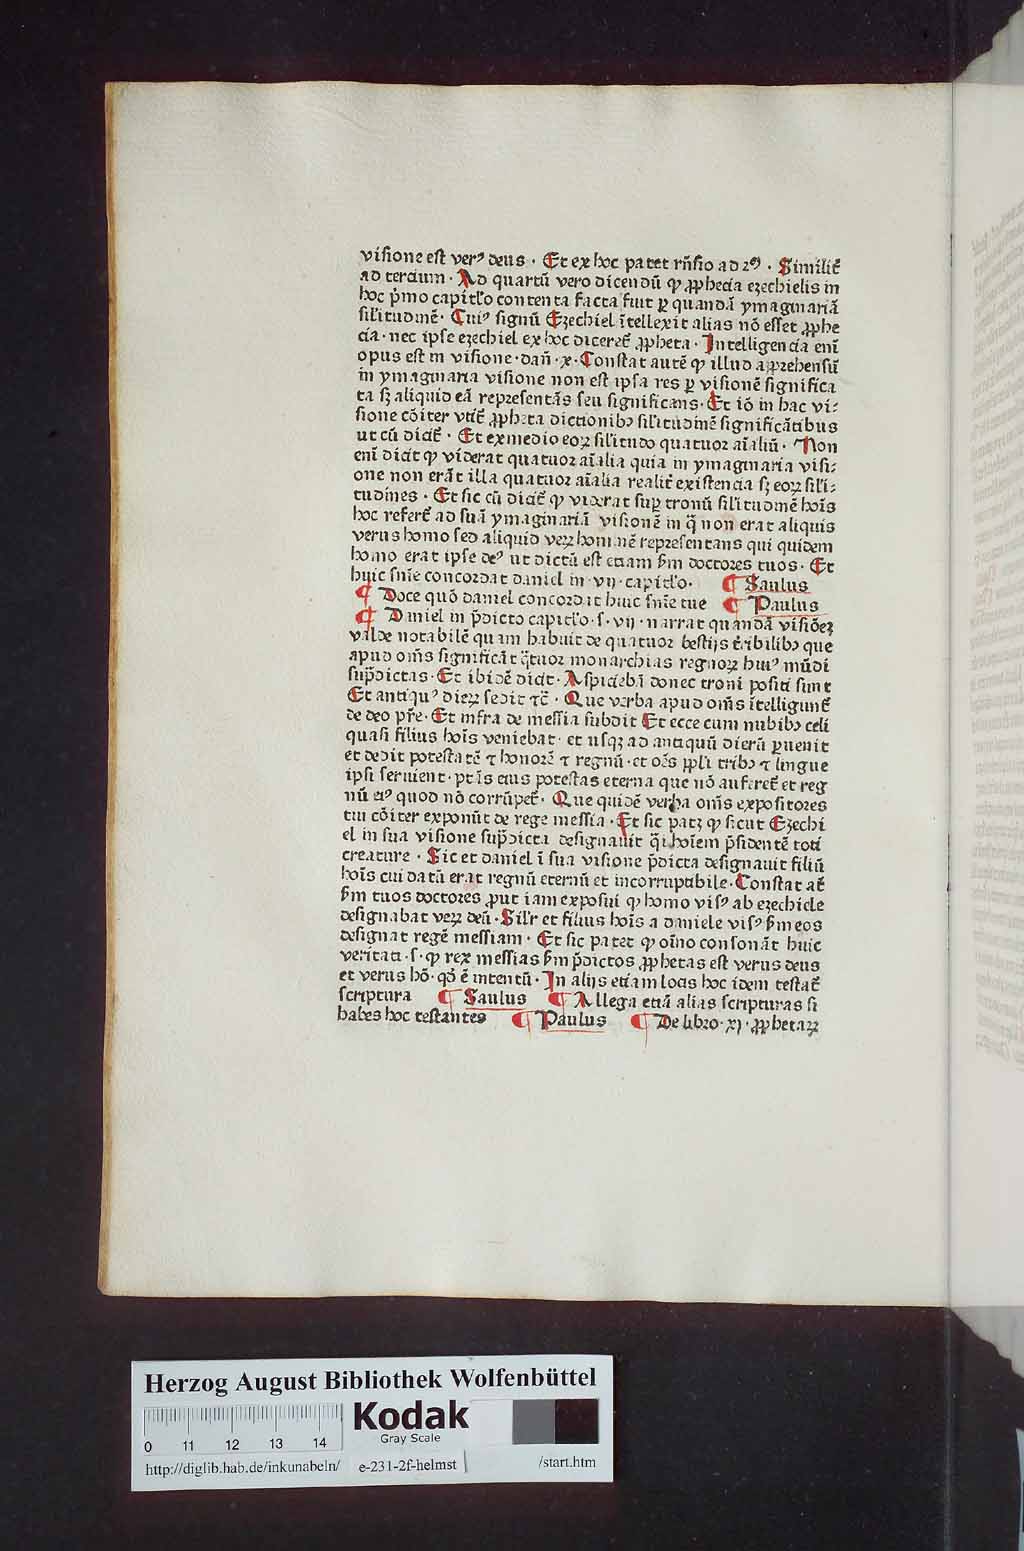 visione est verꝰ deus · Et ex hoc patet rn̄sio ad 2ꝯ · Similit̄
ad tercium · Ad quartū vero dicendū ꝙ ꝓphecia ezechielis in
hoc pͥmo capitl̓o contenta facta fuit ꝑ quandā ymaginariā
sil̓itudinē · Cuiꝰ signū Ezechiel ītellexit alias nō esset ꝓphe
cia · nec ipse ezechiel ex hoc diceret̄ ꝓpheta · Intelligencia enī
opus est in visione · dan̄ · x · Constat autē ꝙ illud apprehensū
in ymaginaria visione non est ipsa res ꝑ visionē significa
ta sꝫ aliquid eā representās seu significans · Et iō in hac vi⸗
sione cōiter vtit̄ ꝓpheta dictionibꝫ sil̓itudinē significātibus
ut cū dicit̄ · Et ex medio eoꝝ sil̓itudo quatuor aīaliū · Non
enī dicit ꝙ viderat quatuor aīalia quia in ymaginaria visi⸗
one non erāt illa quatuor aīalia realit̄ existencia sꝫ eoꝝ sil̓i⸗
tudines · Et sic cū dicit̄ ꝙ viderat suꝑ tronū sil̓itudinē hoīs
hoc refert̄ ad suā ymaginariā visionē in q̄ non erat aliquis
verus homo sed aliquid veꝝ hominē representans qui quidem
homo erat ipse deꝰ ut dictū est etiam ẜm doctores tuos · Et
huic sn̄ie concordat daniel in · vij · capitl̓o · ¶ Saulus
¶ Doce quō daniel concordat huic sn̄ie tue ¶ Paulus
¶ Daniel in p̄dicto capitl̓o · s · vij · narrat quandā visiōeꝫ
valde notabilē quam habuit de quatuor bestijs t̄ribilibꝫ que
apud om̄s significāt q̄tuor monarchias regnoꝝ huiꝰ mūdi
sup̄dictas · Et ibidē dicit · Aspiciebā donec troni positi sunt
Et antiquꝰ dieꝝ sedit ⁊c̄ · Que verba apud om̄s ītelligunt̄
de deo pr̄e · Et infra de messia subdit Et ecce cum nubibꝫ celi
quasi filius hoīs veniebat · et usqꝫ ad antiquū dierū ꝑuenit
et dedit potestatē ⁊ honorē ⁊ regnū · et oēs ppl̓i tribꝫ ⁊ lingue
ipsi seruient · pt̄as eius potestas eterna que nō auferet̄ et reg
nū eiꝰ quod nō corrūpet̄ · Que quidē verba om̄s expositores
tui cōiter exponūt de rege messia · Et sic patꝫ ꝙ sicut Ezechi
el in sua visione sup̄dicta designauit q̄i hoīem p̄sidentē toti
creature · Sic et daniel ī sua visione p̄dicta designauit filiū
hoīs cui datū erat regnū eternū et incorruptibile · Constat at̄
ẜm tuos doctores ꝓut iam exposui ꝙ homo visꝰ ab ezechiele
designabat veꝝ deū · Sil̓r et filius hoīs a daniele visꝰ ẜm eos
designat regē messiam · Et sic patet ꝙ oīno consonāt huic
veritati · s · ꝙ rex messias ẜm p̄dictos ꝓphetas est verus deus
et verus hō · qd̓ ē intentū · In alijs etiam locis hoc idem testat̄
scriptura ¶ Saulus ¶ Allega etiā alias scripturas si
habes hoc testantes ¶ Paulus ¶ De libro · xij · ꝓphetaꝝ
Herzog August Bibliothek Wolfenbüttel
Kodak
Gray Scale
0 11 12 13 14
http://diglib.hab.de/inkunabeln/ e-231-2f-helmst /start.htm